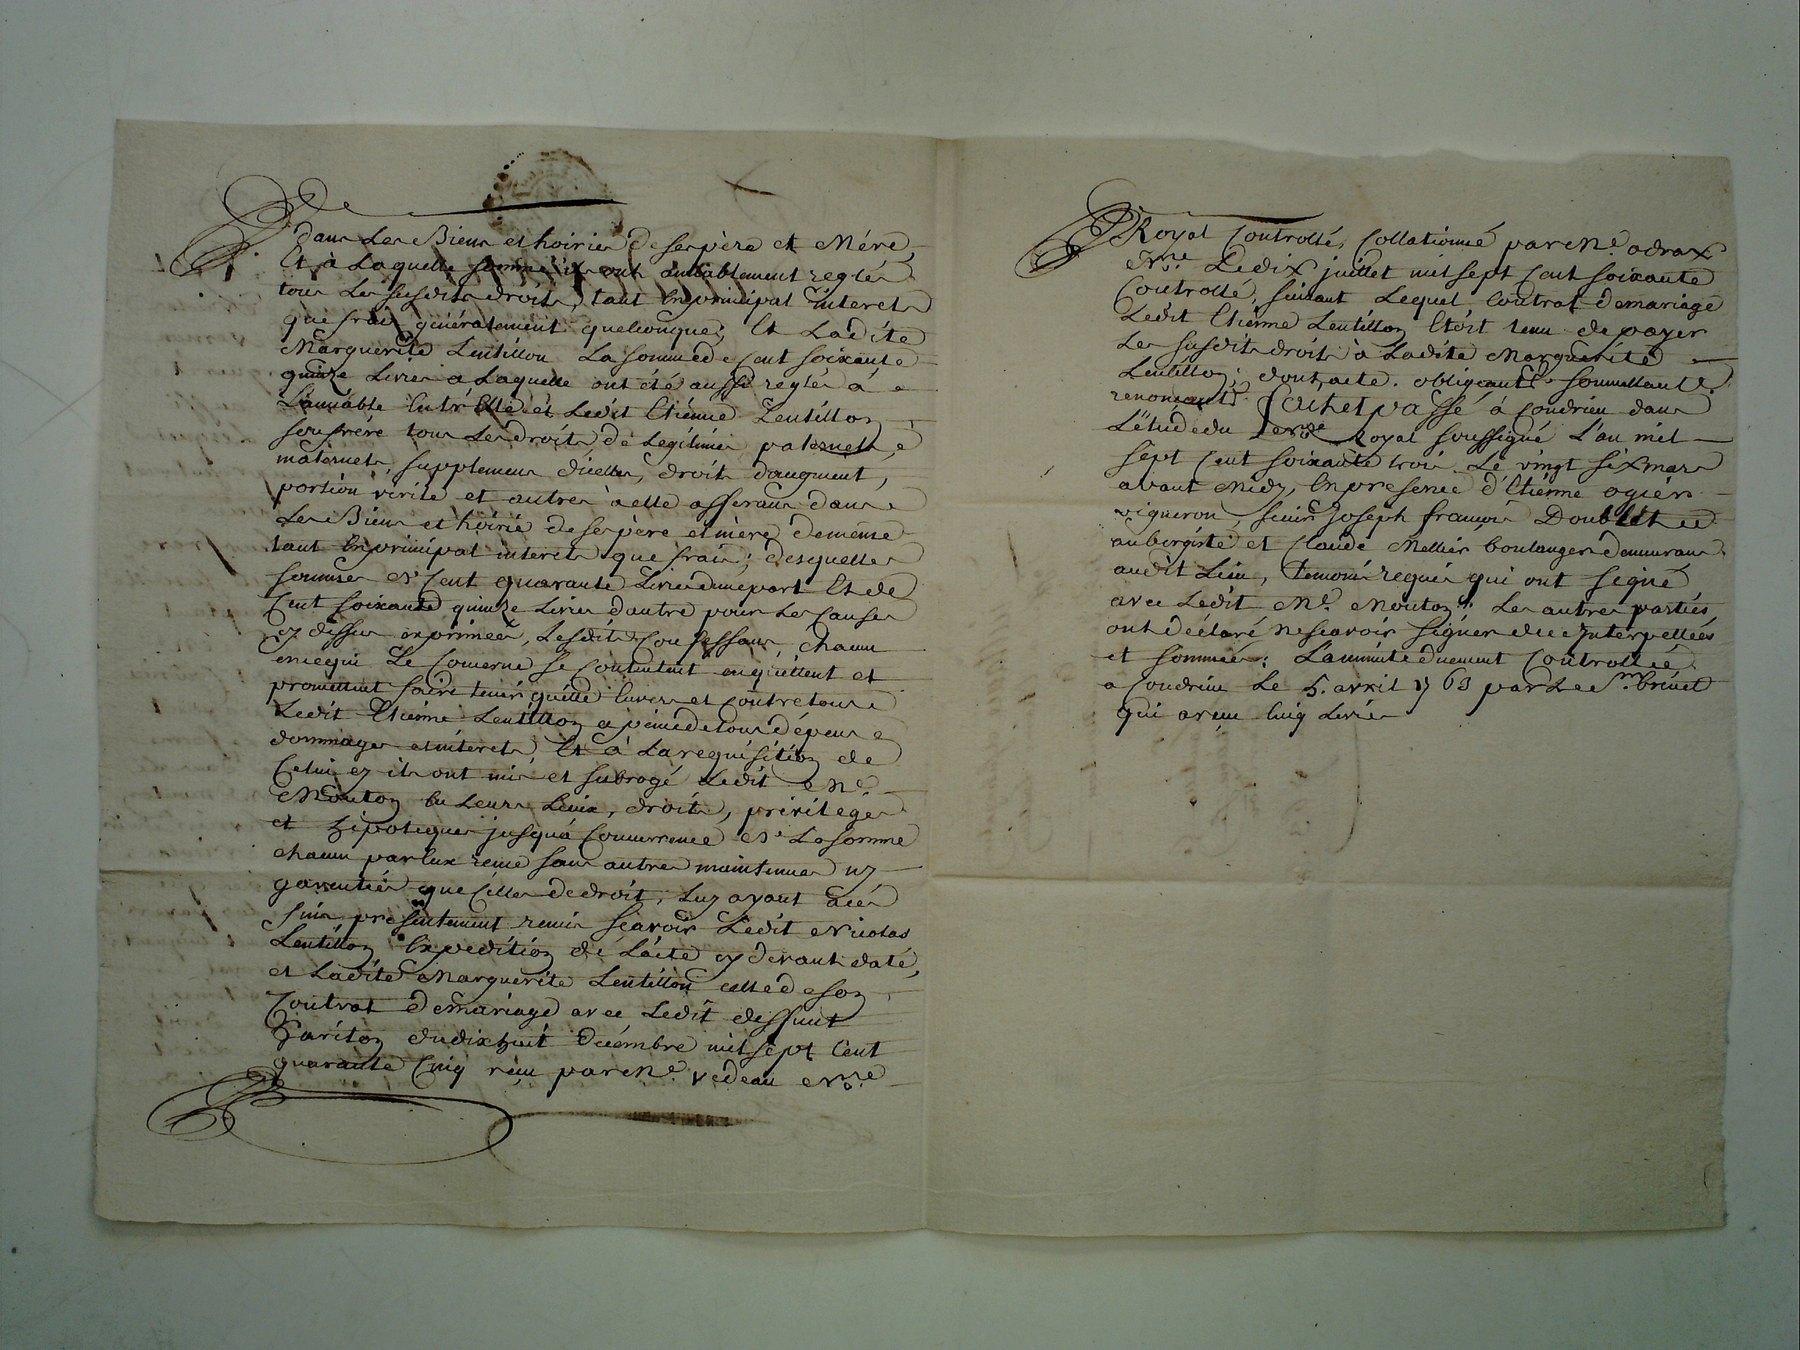 dans Les Biens et hoiries de ses père et Mére,
Et à Laquelle somme ils ont amiablement reglés
tous Les susdits droits, tant En principal interets
que frais généralement quelconques; Et Ladite
Marguerite Lentillon La somme de cent soixante
quinze Livres a Laquelle ont été aussi reglés á
L'amiable Entr'Elle et Ledit Etienne Lentillon
son frére tous Les droits de Legitime paternels, é
maternels, supplemens d'icelles, droit d'augment,
portion virile et autres à elle afferans dans
Les Biens et hoirie de ses père et mère de même
tant En principal interets que frais; desquelles
sommes de Cent quarante Livres d'une part Et de
Cent soixante quinze Livres d'autre pour Les causes
cy dessus exprimées, Lesdits Confessans, chacun
en ce qui Le Concerne se contentent en quittent et
promettent faire tenir quitte Envers et contre tous
Ledit Etienne Lentillon a peine de tous dépens
dommages et interets, Et à La requisition de
Celui cy ils ont mis et subrogé Ledit Me.
Mouton En Leurs Lieux, droits, privileges
et hipoteques jusqu'à Concurrence de La somme
chacun par Eux reçue sans autres maintenues ny
garenties que Celles de droit, Luy ayant à ces
fins présentement remis sçavoir Ledit Nicolas
Lentillon Expedition de L'acte cy devant daté,
et Ladite Marguerite Lentillon celle de son
Contrat de mariage avec Ledit deffunt
Pariton du dix huit décembre mil sept Cent
quarante Cinq reçu par Me. Vedeau Nre.
Royal Controllé, Collationné par Me. adrax
Nre. Le dix juillet mil sept Cent soixante
Controllé, suivant Lequel Contrat de mariage
Ledit Etienne Lentillon Etoit tenu de payer
Les susdits droits à Ladite Marguerite
Lentillon; dont acte. obligeants. soumettants.
renonçants. fait et passé à Condrieu dans
L'étude du Nre. Royal soussigné L'an mil
sept Cent soixante trois Le vingt six mars
avant Midy, En presence d'Etienne ogier
vigneron, sieur Joseph françois Doublet
aubergiste et Claude Mellier boulanger demeurans
audit Lieu, temoins requis qui ont signé
avec Ledit Me. Mouton; Les autres parties
ont déclaré ne scavoir signer de ce Interpellées
et sommées; La minute duement Controllée
a Condrieu Le 5. avril 1763 par Le Sr. brenet
qui a reçu Cinq Livres